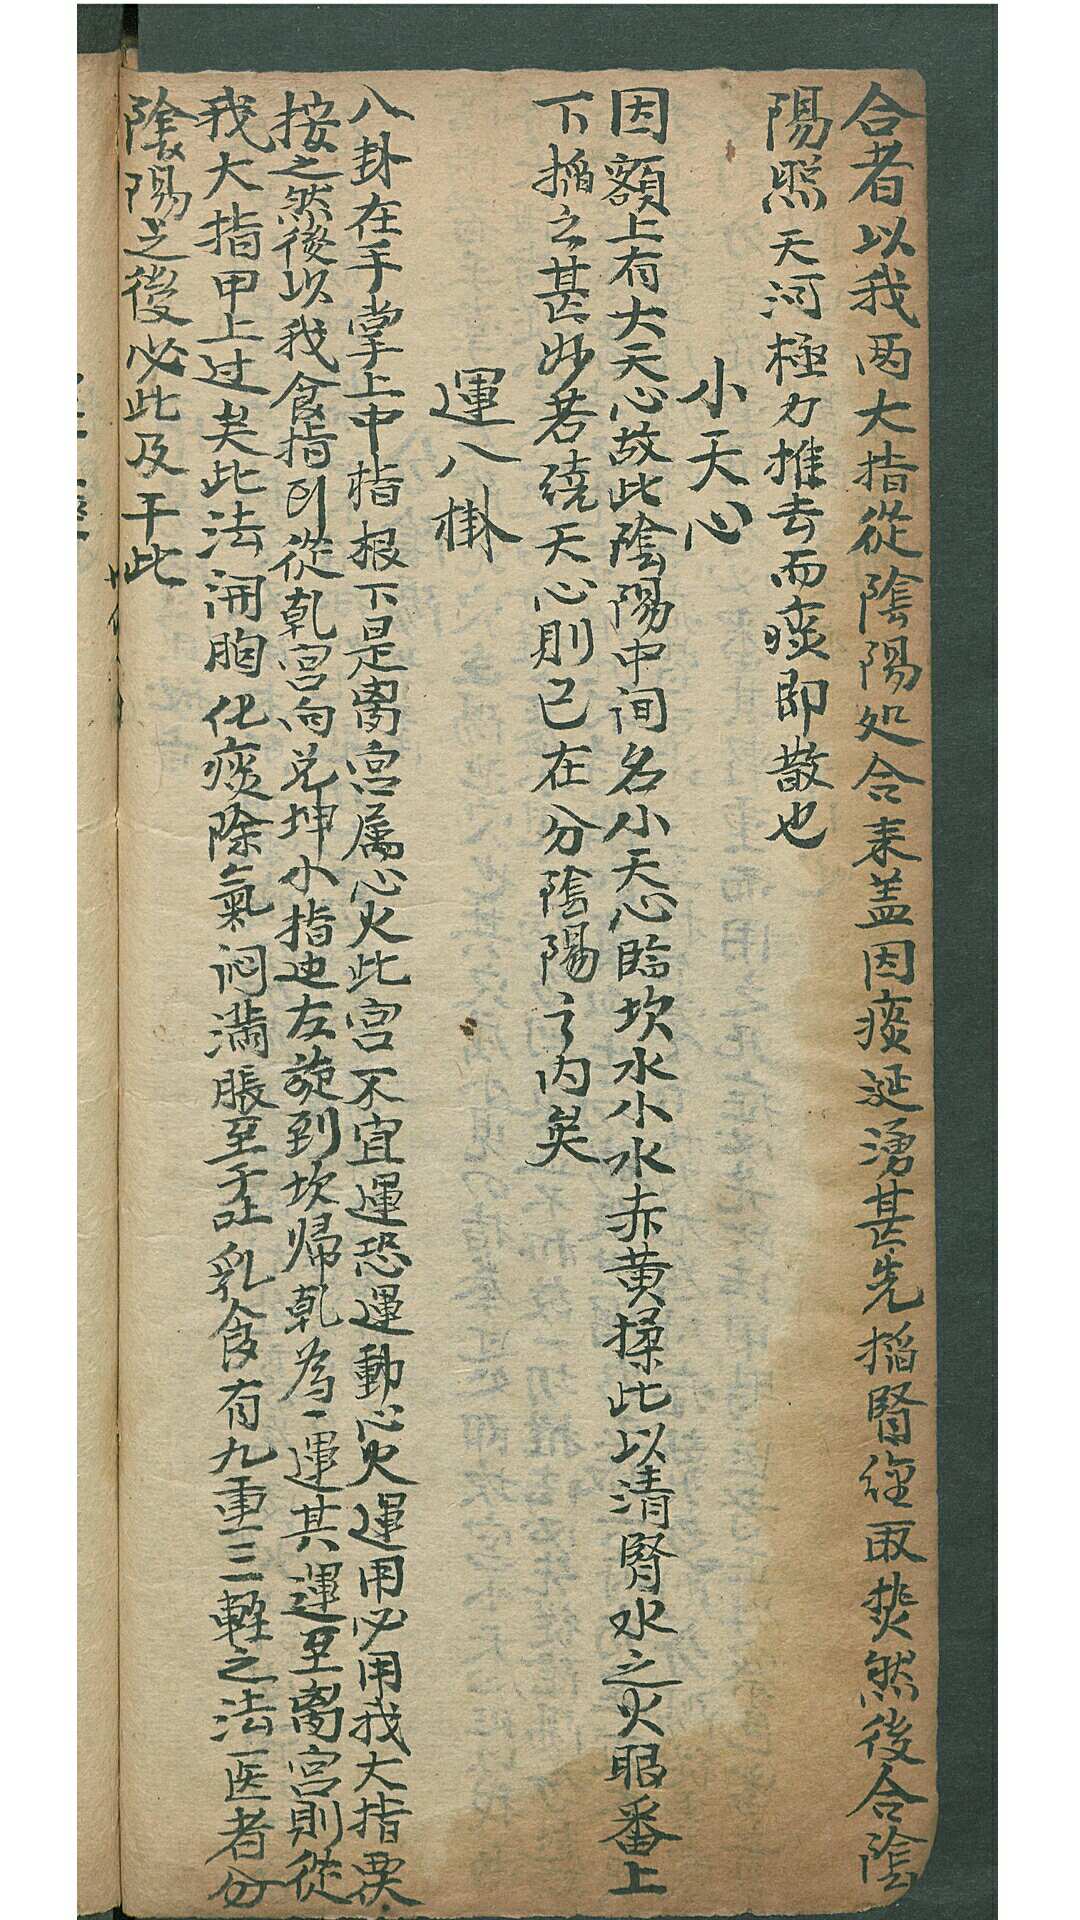 合者以我两大指從陰陽处合来盖因痰涎湧甚先掐腎經取热然後合陰
陽照天河極力推去而痰即散也
小天心
因額上有大天心故此陰陽中间名小天心臨坎水小水赤黄揉此以清腎水之火眼番上
下掐之甚妙若绕天心則已在分陰陽之内矣
運八掛
八卦在手掌上中指根下是离宫属心火此宫不宜運恐運動心火運用必用我大指
按之然後以我食指引從乾宫向兑坤小指边左旋到坎帰乾為一運其運至离宫則從
我大指甲上过矣此法開胸化痰除氣闷满脹至于吐乳食有九重三轻之法医者分
陰陽之後必此及于此